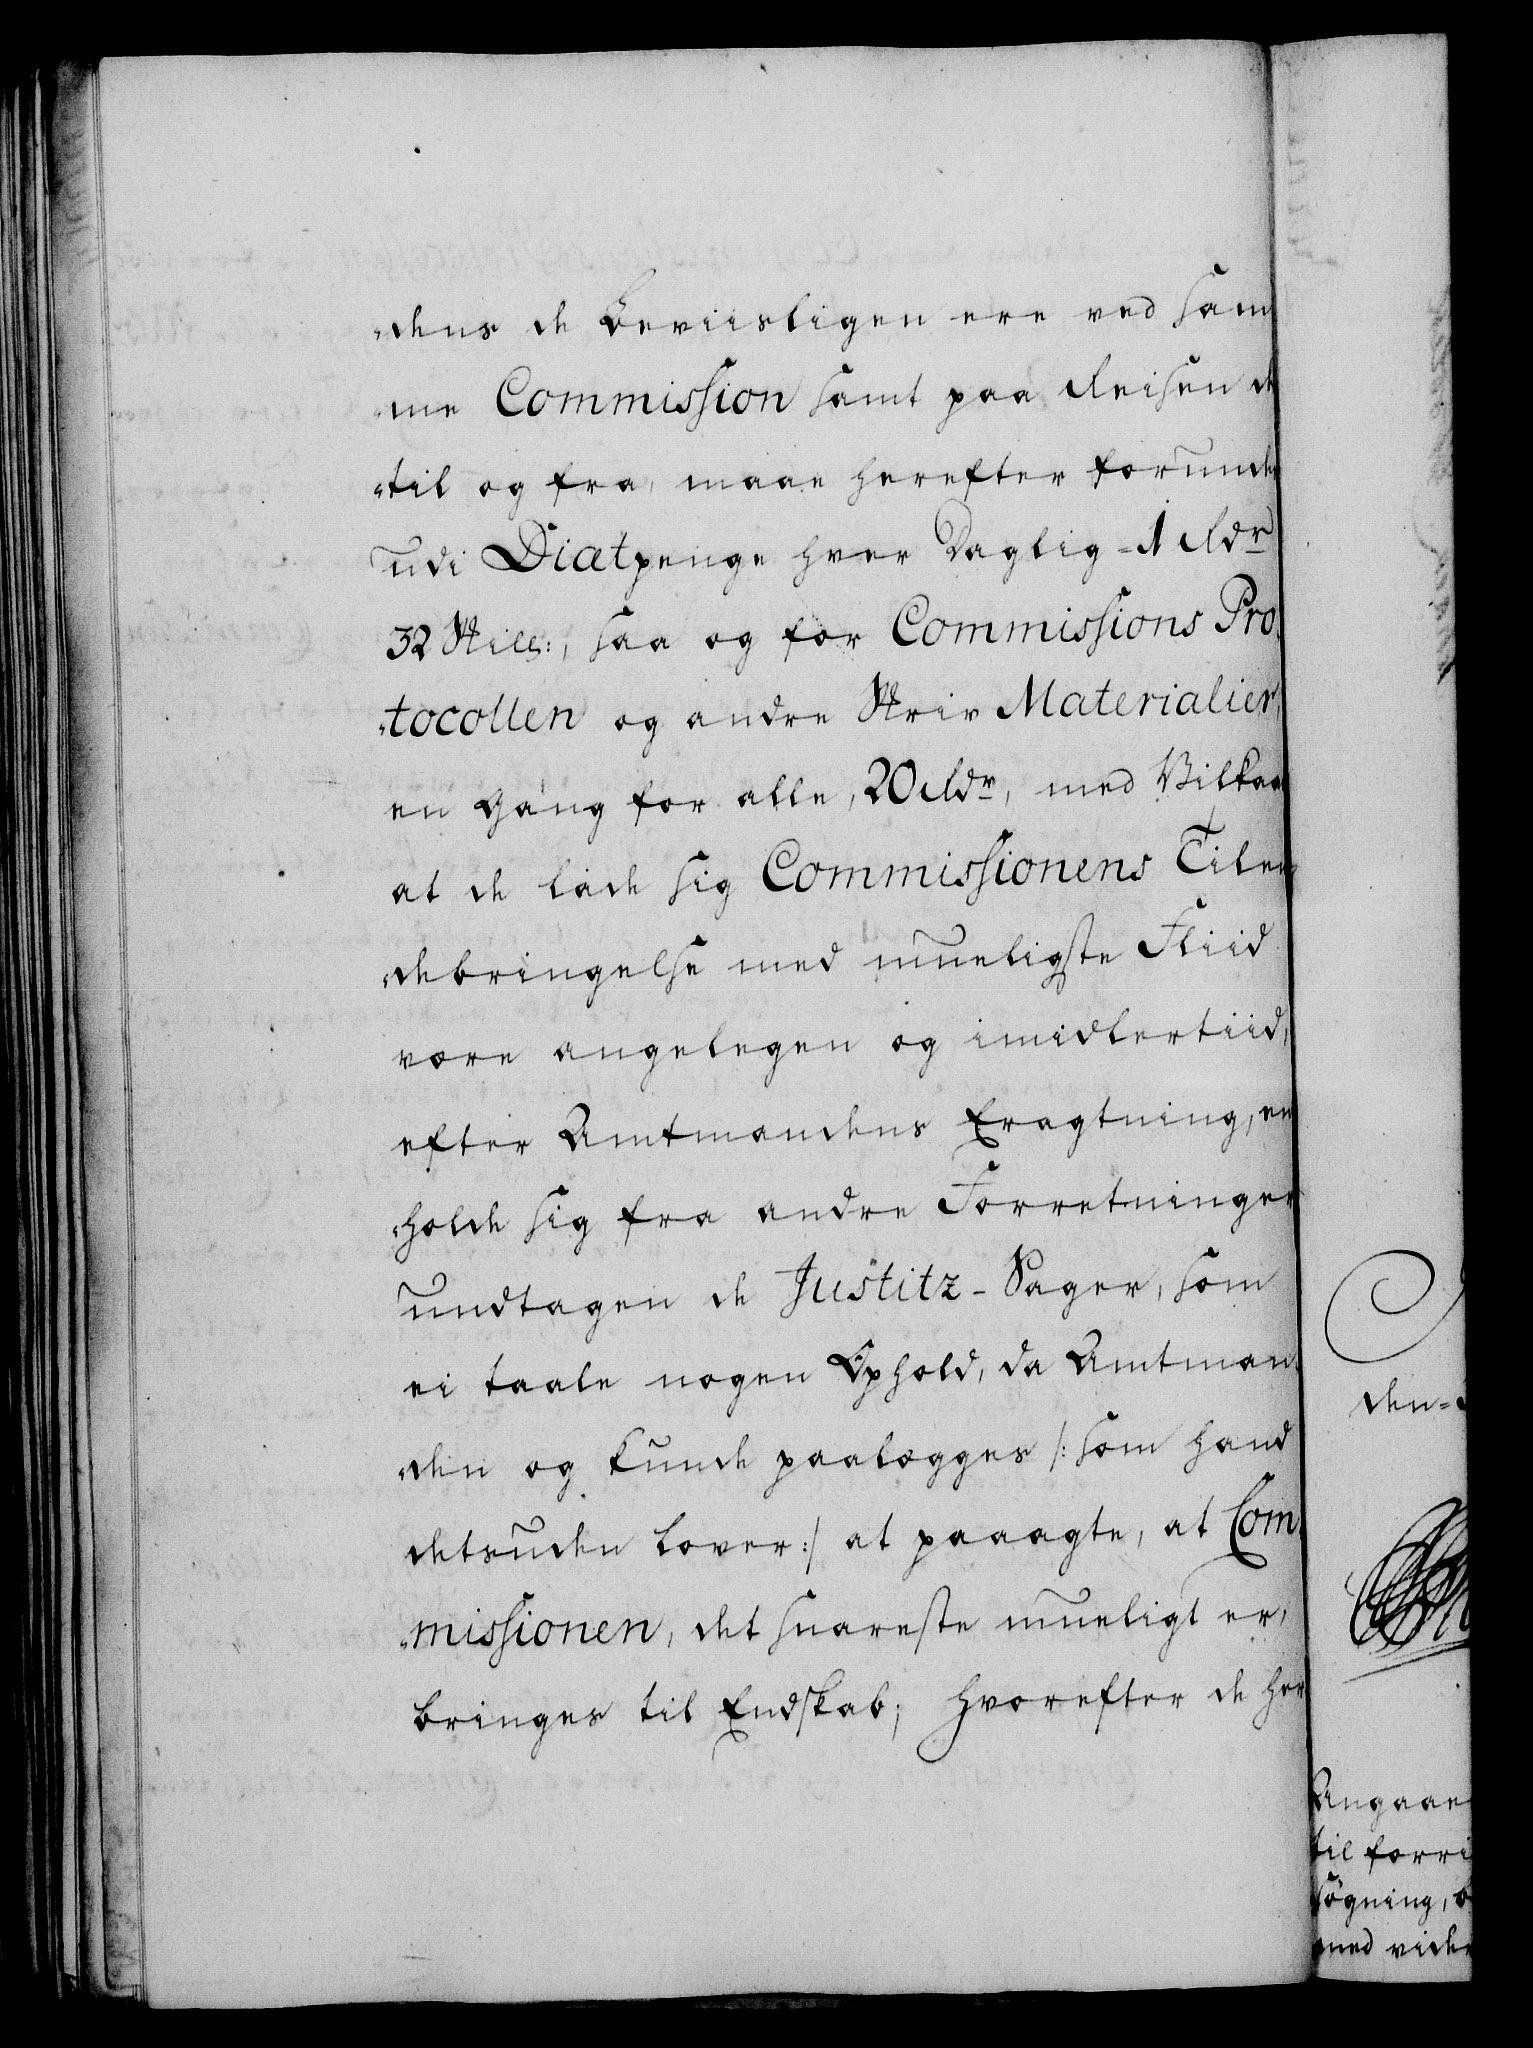 „dens de beviisligen ere ved sam
„me Commission samt paa Reisen de
„til og fra, maae herefter forunde
udi Diætpenge hver Daglig = 1 Rdr
32 Skill:, saa og for Commissions Pro„
„tocollen og andre Skriv Materialier,
en Gang for alle, 20 Rdr, med Vilkaar
at de lade sig Commissionens Tilen
„debringelse med mueligste Fliid
være angelegen og imidlertiid,
efter Amtmandens Eragtning, en
„holde sig fra andre Forretninger
undtagen de Justitz-Sager, som
ei taale nogen Ophold, da Amtman„
„den og kunde paalegges /: som hand
desuden lover :/ at paaagte, at Com„
„missionen, det snareste mueligt er,
bringes til Endskab; hvorefter de her
den =
Angaae
til forri
søgning, o
med vide